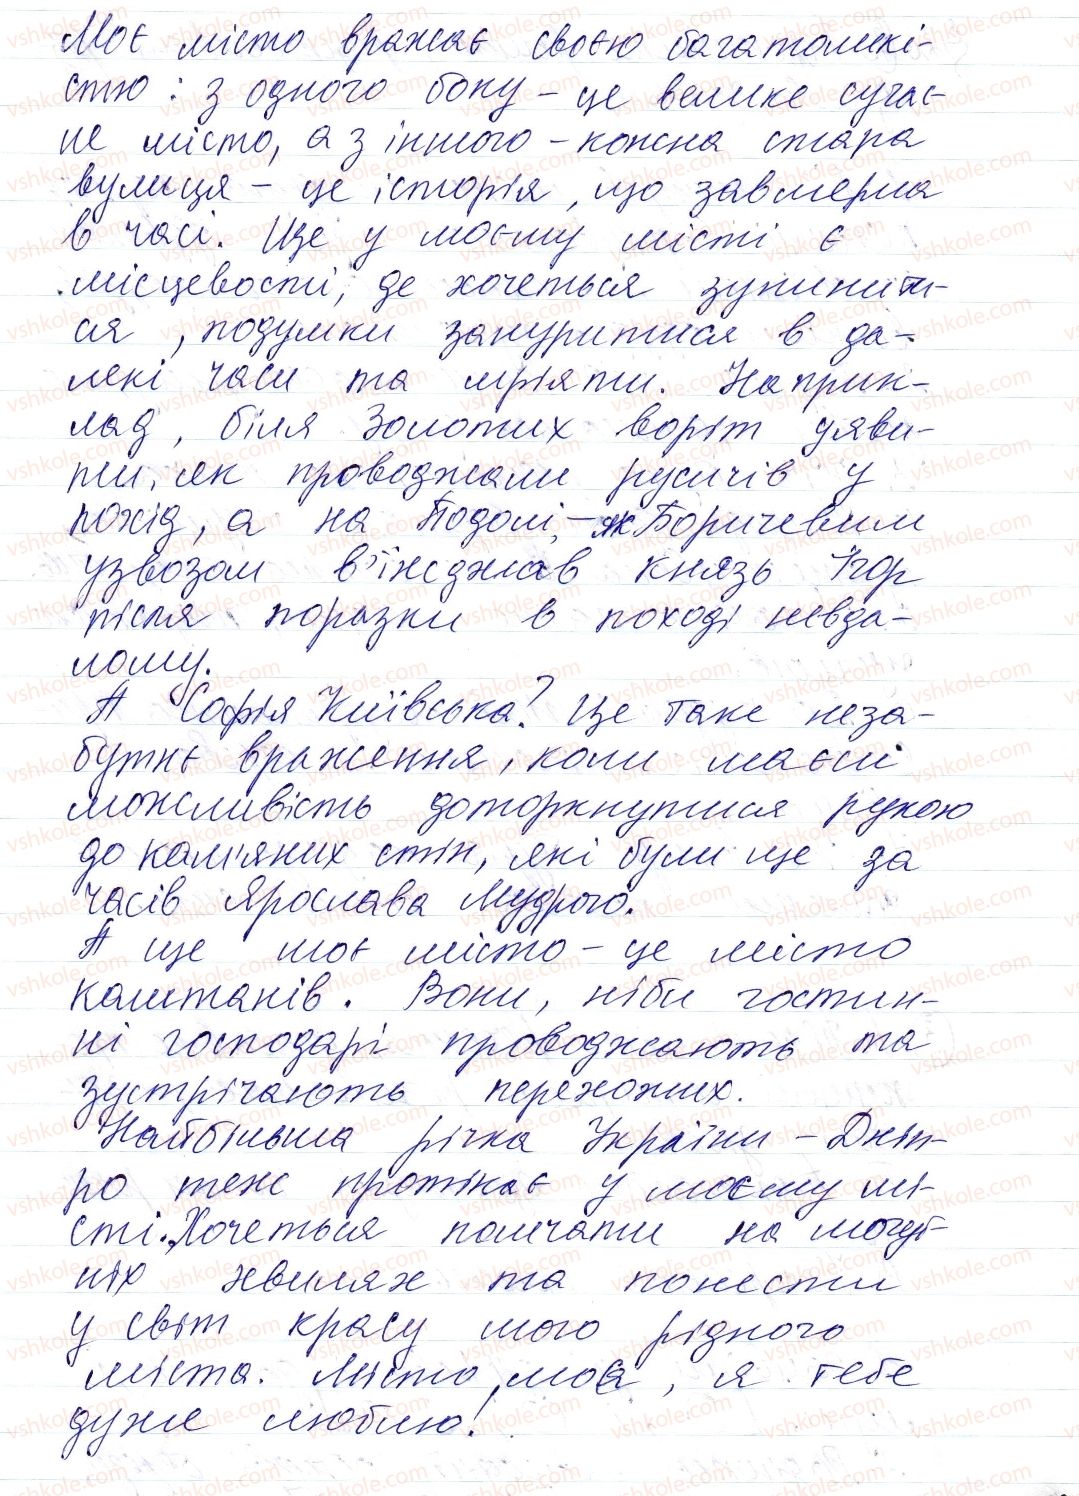 Моє місто вражає своєю багатоликі-
стю: з одного боку – це велике сучас-
не місто, а з іншого – кожна стара
вулиця – це історія, що завмерла
в часі. Ще у моєму місті є
місцевості, де хочеться зупинити-
ся, подумки зануритися в да-
лекі часи та мріяти. Наприк-
лад, біля Золотих воріт уяви-
ти, як проводжали русичів у
похід, а на Подолі, – як Боричевим
узвозом в'їжджав князь Ігор
після поразки в поході невда-
лому.
А Софія Київська? Це таке неза-
бутнє враження, коли маєш
можливість доторкнутися рукою
до кам'яних стін, які були ще за
часів Ярослава Мудрого.
А ще моє місто – це місто
каштанів. Вони, ніби гостин-
ні господарі проводжають та
зустрічають перехожих.
Найбільша річка України – Дніп-
ро теж протікає у моєму мі-
сті. Хочеться помчати на могут-
ніх хвилях та понести
у світ красу мого рідного
міста. Місто моє, я тебе
дуже люблю!